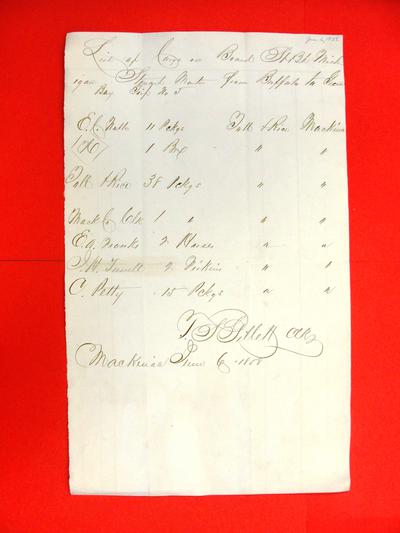 June 6, 1855
List of Cargo on Board St Bt Mich
igan Stewart Master from Buffalo to Green
Bay Trip No 5
E. C. Walls 11 Pckgs Talk & Rice Mackinac
1 Box " "
Talk & Rice 38 Pckgs " "
Mack Co Clk 1 " " "
E. A. Franks 2 Horses " "
2 Firkins " "
C. Petty 15 Pckgs " "
Clk
Mackinac June 6